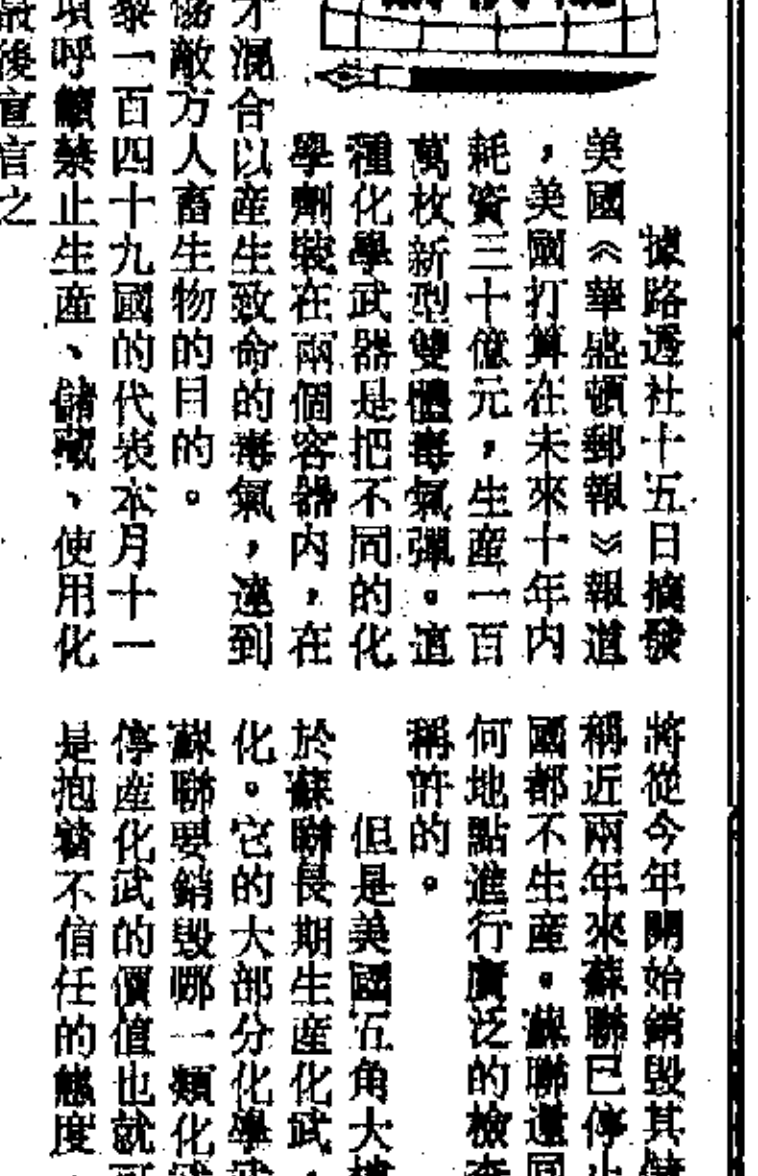 據路透社十五日擴發
美國《華盛頓郵報》報道
，美國打算在未來十年內
耗資三十億元，生產一百
萬枚新型雙體毒氣彈。這
種化學武器是把不同的化
學劑裝在兩個容器內，在
才混合以產生致命的毒氣，達到
敵方人畜生物的目的。
黎一百四十九國的代表本月十一
項呼籲禁止生產、儲藏、使用化
最後宣言之
將從今年開始銷毀其
稱近兩年來蘇聯已停
國都不生產。蘇聯還同
何地點進行廣泛的檢查
稱許的。
但是美國五角大樓
於蘇聯長期生產化武，
化。它的大部分化學武
蘇聯要銷毀哪一類化武
停產化武的價值也就可
是抱着不信任的態度，